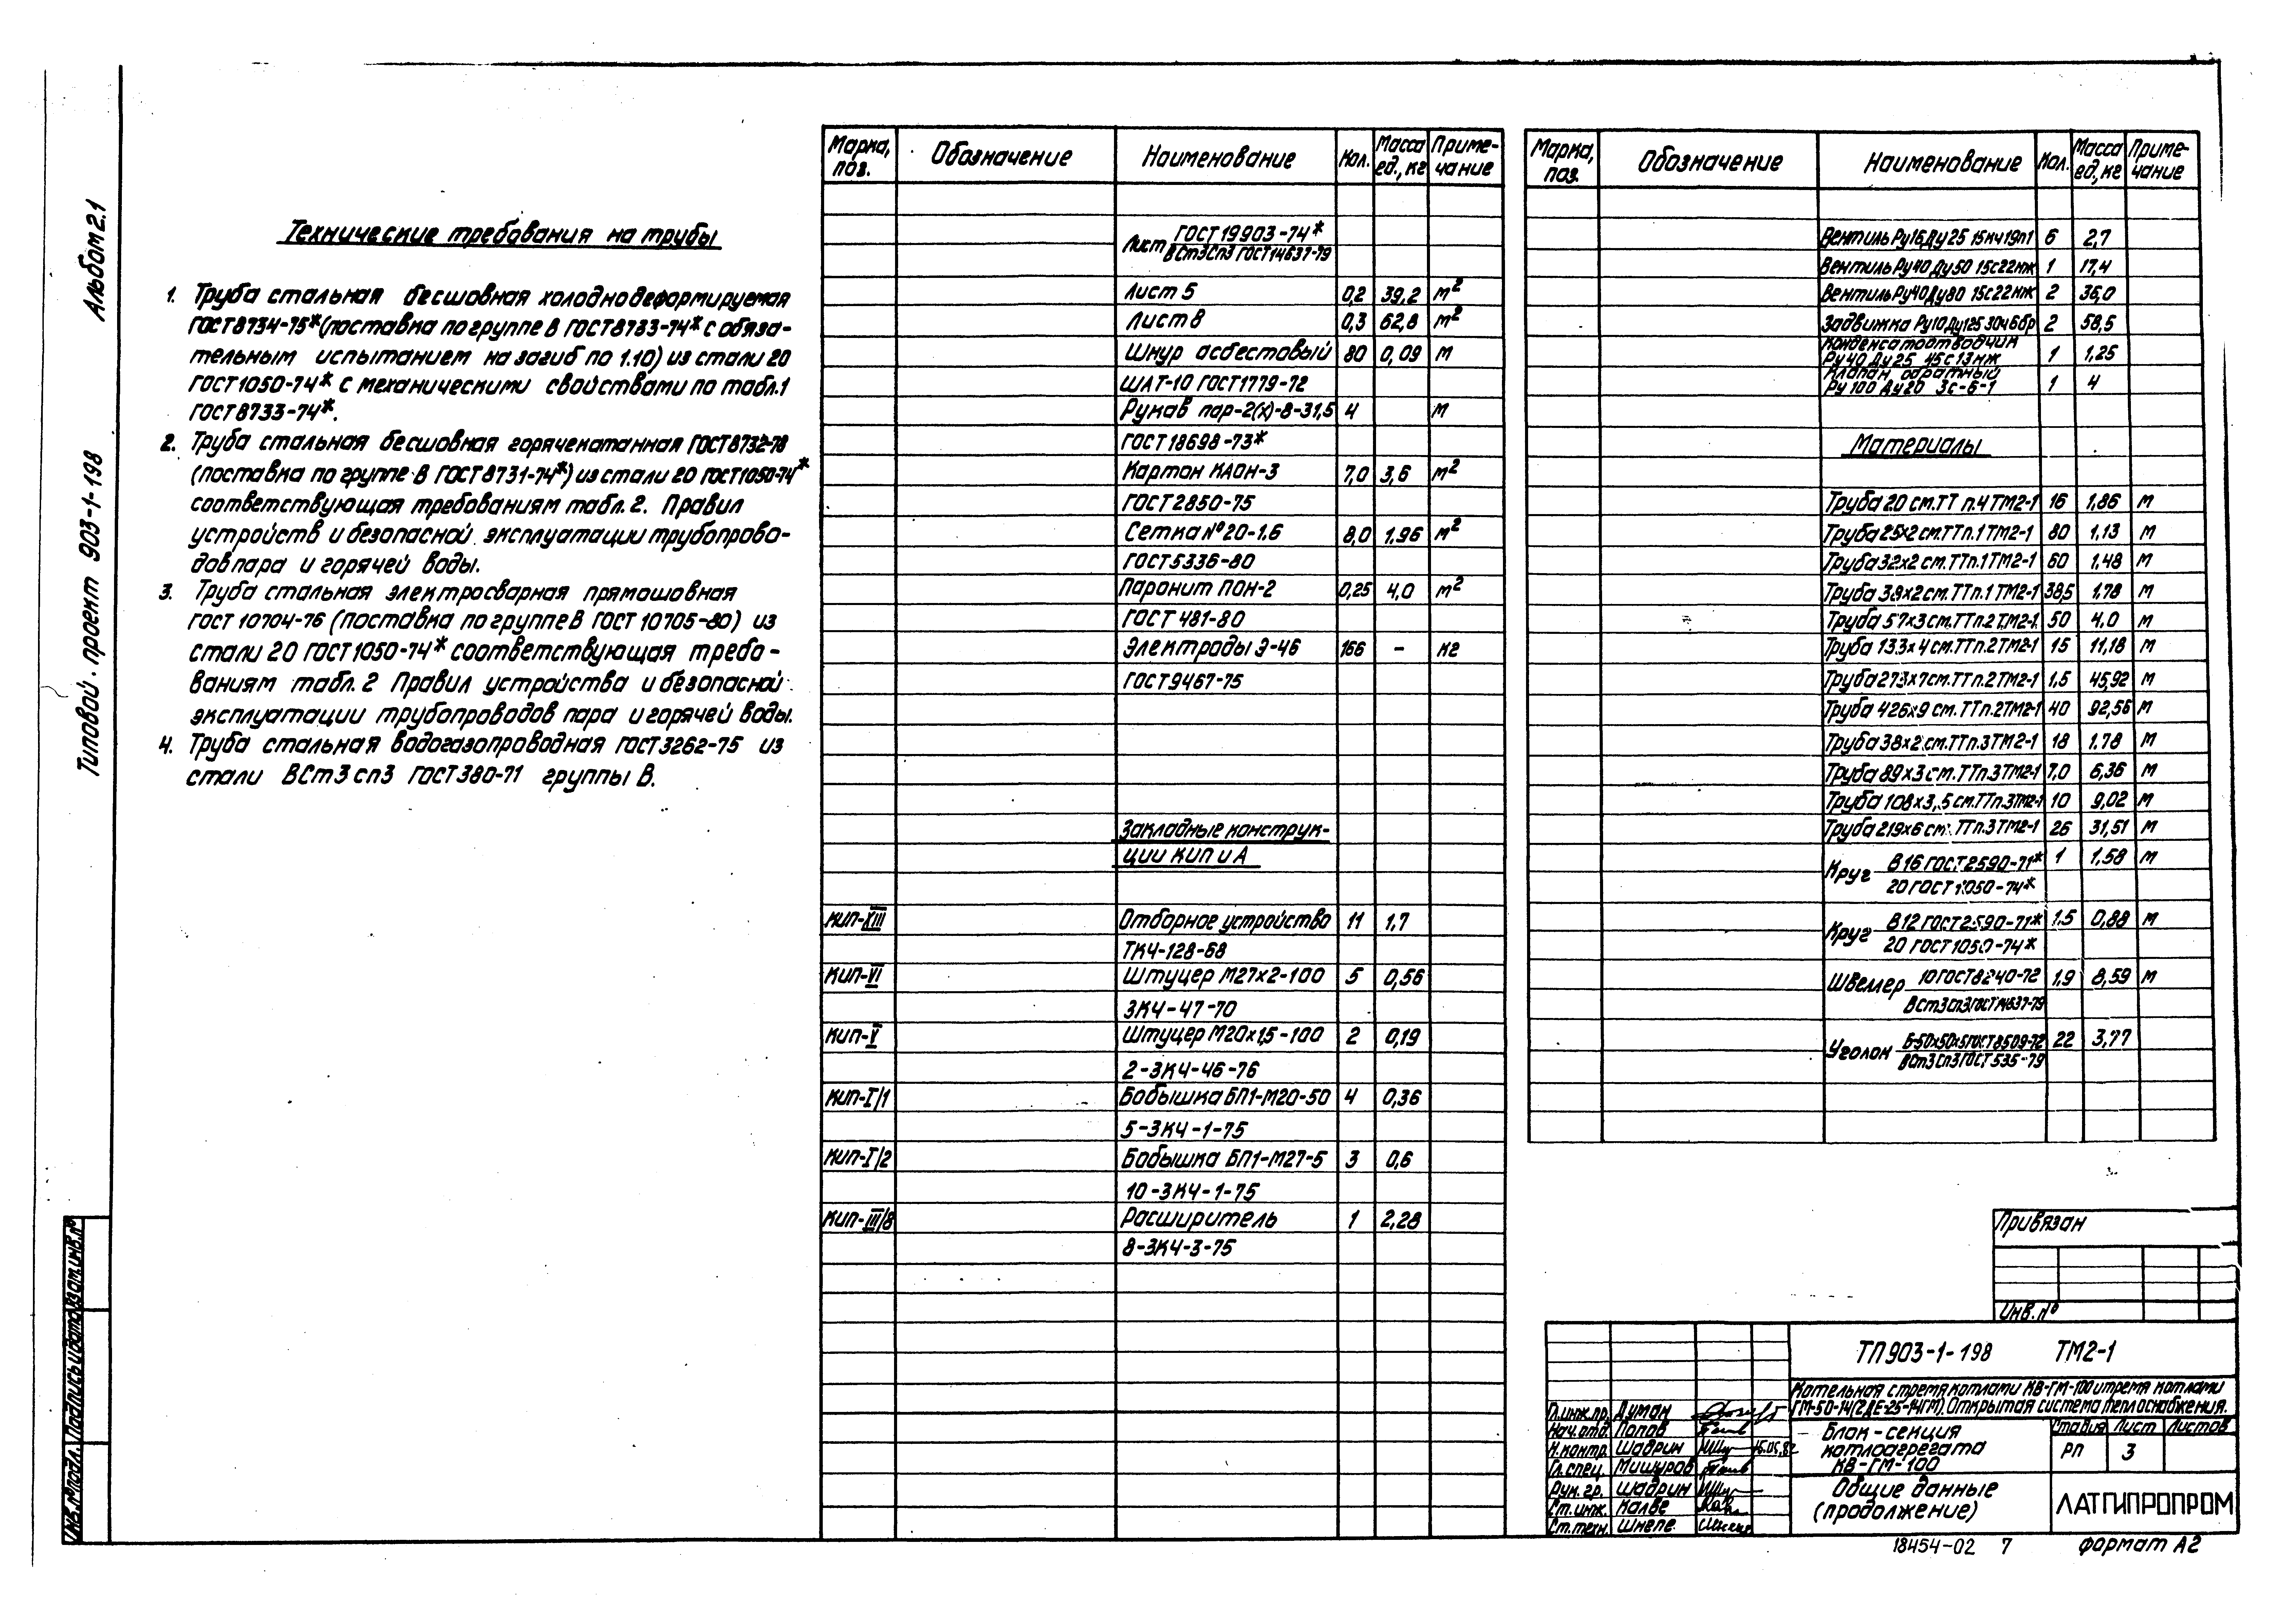 Альбом 2.1
Типовой проект 903-1-198
Технические требования на трубы
1. Труба стальная бесшовная холоднодеформируемая
ГОСТ 8734-75* (поставка по группе В ГОСТ 8733-74* с обяза-
тельным испытанием на загиб по 1.10) из стали 20
ГОСТ 1050-74* с механическими свойствами по табл.1
ГОСТ 8733-74*.
2. Труба стальная бесшовная горячекатанная ГОСТ 8732-78
(поставка по группе В ГОСТ 8731-74*) из стали 20 ГОСТ 1050-74*
соответствующая требованиям табл. 2. Правил
устройств и безопасной эксплуатации трубопрово-
дов пара и горячей воды.
3. Труба стальная электросварная прямошовная
ГОСТ 10704-76 (поставка по группе В ГОСТ 10705-80) из
стали 20 ГОСТ 1050-74* соответствующая требо-
ваниям табл. 2 Правил устройства и безопасной
эксплуатации трубопроводов пара и горячей воды.
4. Труба стальная водогазопроводная ГОСТ 3262-75 из
стали ВСт3сп3 ГОСТ 380-71 группы В.
Марка, поз. Обозначение Наименование Кол. Масса ед., кг Приме-чание
ГОСТ 19903-74*
Лист ВСт3Сп3 ГОСТ 14637-79
Лист 5 0,2 39,2 м²
Лист 8 0,3 62,8 м²
Шнур асбестовый 80 0,09 м
ШАТ-10 ГОСТ 1779-72
Рукав пар-2(х)-8-31,5 4 м
ГОСТ 18698-73*
Картон КАОН-3 7,0 3,6 м²
ГОСТ 2850-75
Сетка №20-1.6 8,0 1,96 м²
ГОСТ 5336-80
Паронит ПОН-2 0,25 4,0 м²
ГОСТ 481-80
Электроды Э-46 166 – кг
ГОСТ 9467-75
Закладные конструк-
ции КИП и А
КИП-XIII Отборное устройство 11 1,7
ТК4-128-68
КИП-VI Штуцер М27х2-100 5 0,56
3К4-47-70
КИП-V Штуцер М20х1,5-100 2 0,19
2-3К4-46-76
КИП-I/1 Бобышка БП1-М20-50 4 0,36
5-3К4-1-75
КИП-I/2 Бобышка БП1-М27-5 3 0,6
10-3К4-1-75
КИП-III/8 Расширитель 1 2,28
8-3К4-3-75
Марка, поз. Обозначение Наименование Кол. Масса ед, кг Приме-чание
Вентиль Ру16 Ду 25 15кч19п1 6 2,7
Вентиль Ру40 Ду50 15с22нж 1 17,4
Вентиль Ру40 Ду80 15с22нж 2 36,0
Задвижка Ру10 Ду125 30ч6бр 2 58,5
Конденсатоотводчик
Ру40 Ду25 45с13нж 1 1,25
Клапан обратный
Ру 100 Ду20 3с-6-1 1 4
Материалы
Труба 20 см.ТТ п.4 ТМ2-1 16 1,86 м
Труба 25х2 см.ТТп.1 ТМ2-1 80 1,13 м
Труба 32х2 см.ТТп.1ТМ2-1 60 1,48 м
Труба 38х2 см.ТТп.1 ТМ2-1 38,5 1,78 м
Труба 57х3 см.ТТп.2 ТМ2-1 50 4,0 м
Труба 133х4 см.ТТп.2ТМ2-1 15 11,18 м
Труба 273х7 см.ТТп.2ТМ2-1 1,5 45,92 м
Труба 426х9 см.ТТп.2ТМ2-1 40 92,56 м
Труба 38х2 см.ТТп.3ТМ2-1 18 1.78 м
Труба 89х3 см.ТТп.3ТМ2-1 7,0 6,36 м
Труба 108х3,5 см.ТТп.3ТМ2-1 10 9,02 м
Труба 219х6 см. ТТп.3ТМ2-1 26 31,51 м
Круг В16 ГОСТ 2590-71* 1 1,58 м
20 ГОСТ 1050-74*
Круг В12 ГОСТ 2590-71* 1.5 0,88 м
20 ГОСТ 1050-74*
Швеллер 10 ГОСТ 8240-72 1,9 8,59 м
ВСт3Сп3 ГОСТ 14637-79
Уголок Б-50х50х5 ГОСТ 8509-72 22 3,77
ВСт3Сп3 ГОСТ 535-79
Привязан
Инв. №
ТП 903-1-198 ТМ2-1
Котельная с тремя котлами КВ-ГМ-100 и тремя котлами
ГМ-50-14 (2ДЕ-25-14ГМ). Открытая система теплоснабжения.
Гл.инж.пр. Думан
Нач.отд. Попов
Н.контр. Шадрин
Гл.спец. Мишуров
Рук. гр. Шадрин
Ст. инж. Калве
Ст.техн. Шнепе
Блок-секция
котлоагрегата
КВ-ГМ-100
Стадия Лист Листов
РП 3
Общие данные
(продолжение)
ЛАТГИПРОПРОМ
18454-02 7
формат А2
Инв.№подл. Подпись и дата Взам.инв.№